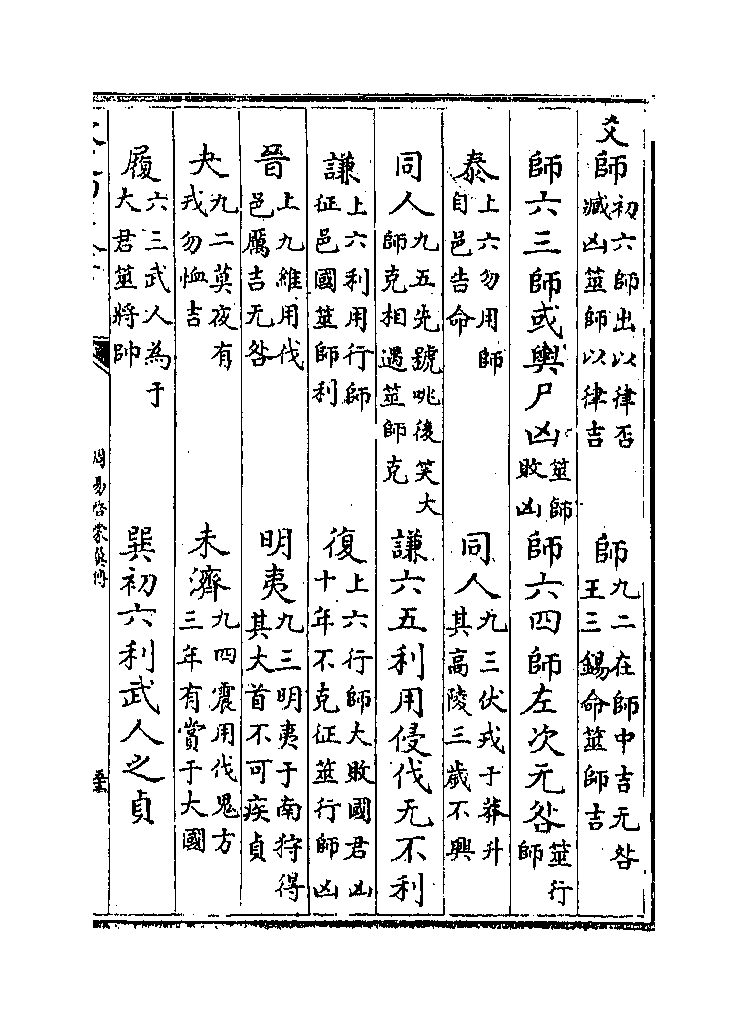 爻師初六師出以律否臧凶筮師以律吉　師九二在師中吉无咎王三錫命筮師吉
師六三師或輿尸凶筮師敗凶　師六四師左次无咎筮行師
泰上六勿用師自邑告命　同人九三伏戎于莽升其高陵三歲不興
同人九五先號咷後笑大師克相遇筮師克　謙六五利用侵伐无不利
謙上六利用行師征邑國筮師利　復上六行師大敗國君凶十年不克征筮行師凶
晉上九維用伐邑厲吉无咎　明夷九三明夷于南狩得其大首不可疾貞
夬九二莫夜有戎勿恤吉　未濟九四震用伐鬼方三年有賞于大國
履六三武人為于大君筮將帥　巽初六利武人之貞
周易啓蒙翼傳